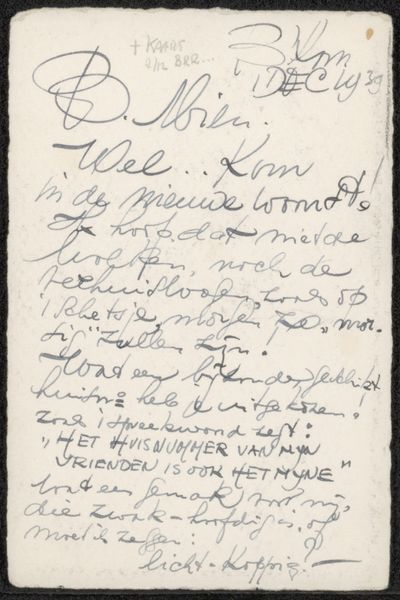 + KAART
2/12 BRR...
DEC 1939
B. Mien.
Wel.. Kom
in de nieuwe woonst!
Ik hoop dat niet de
noch de
zooals op
'schetsje, morgen
zullen zijn.
Wat een bijzonder geschikt
huisnº heb je uitgekozen.
zooals 't spreekwoord zegt:
„HET HUISNUMMER VAN MIJN
VRIENDEN IS OOK HET MIJNE"
Wat een gemak voor mij,
die zwak-hoofdig is, of
moet ik zeggen:
licht-koppig? —